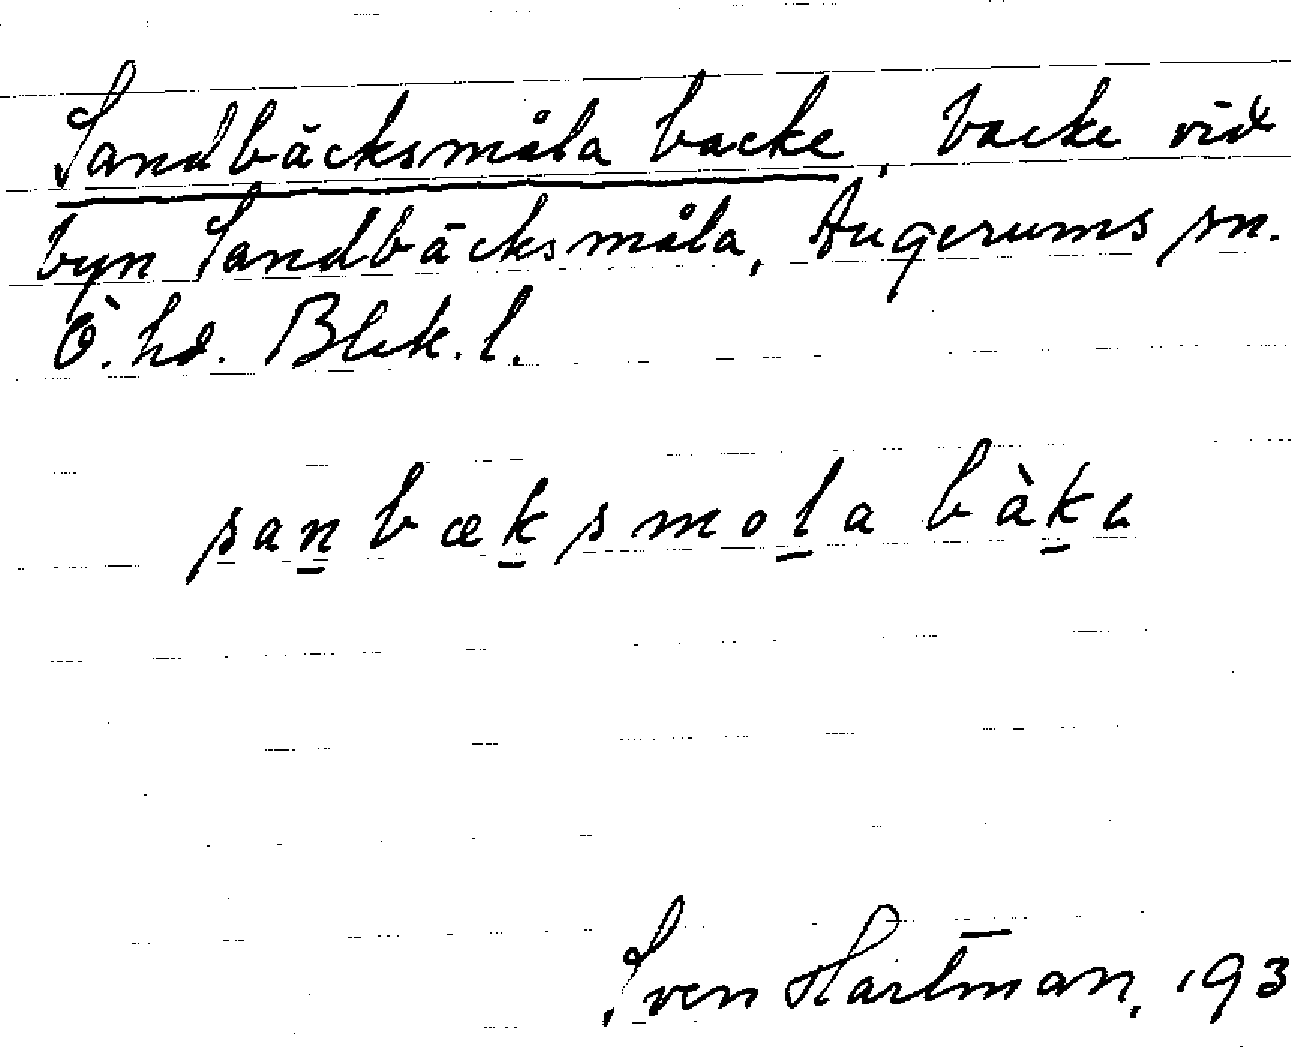 Sandbäcksmåla backe, backe vid
byn Sandbäcksmåla, Augerums sn.
Ö. hd. Blek. l.
sanbæksmola bàka
Sven Hartman, 193